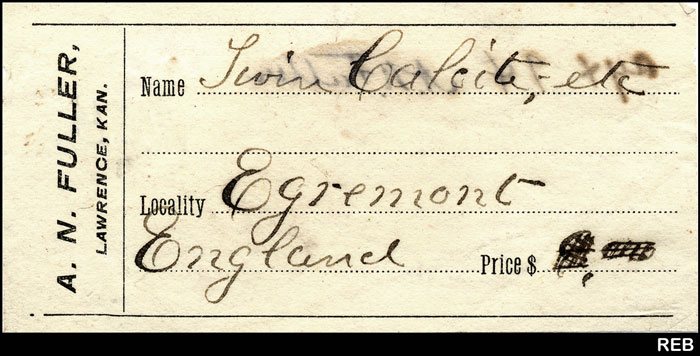 A. N. FULLER,
LAWRENCE, KAN.
Name Twin Calcite, etc
Locality Egremont
England Price $
REB